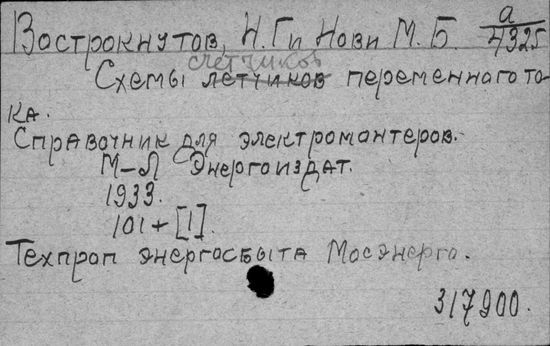 Вострокнутов, Н. Г. и Нови М. Б. а/4325
счетчиков
Схемы летчиков переменного то-
ка.
Справочник для электромонтеров.
М-Л Энергоиздат.
1933.
101 + [1].
Техпроп энергосбыта Мосэнерго.
317900.